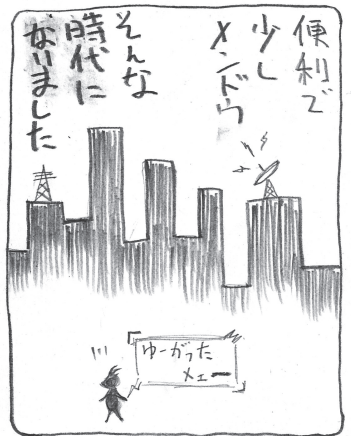 便利で
少し
メンドウ
そんな
時代に
なりました
ゆーがった
メェー